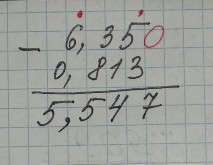 - 6,350
0,813
5,547